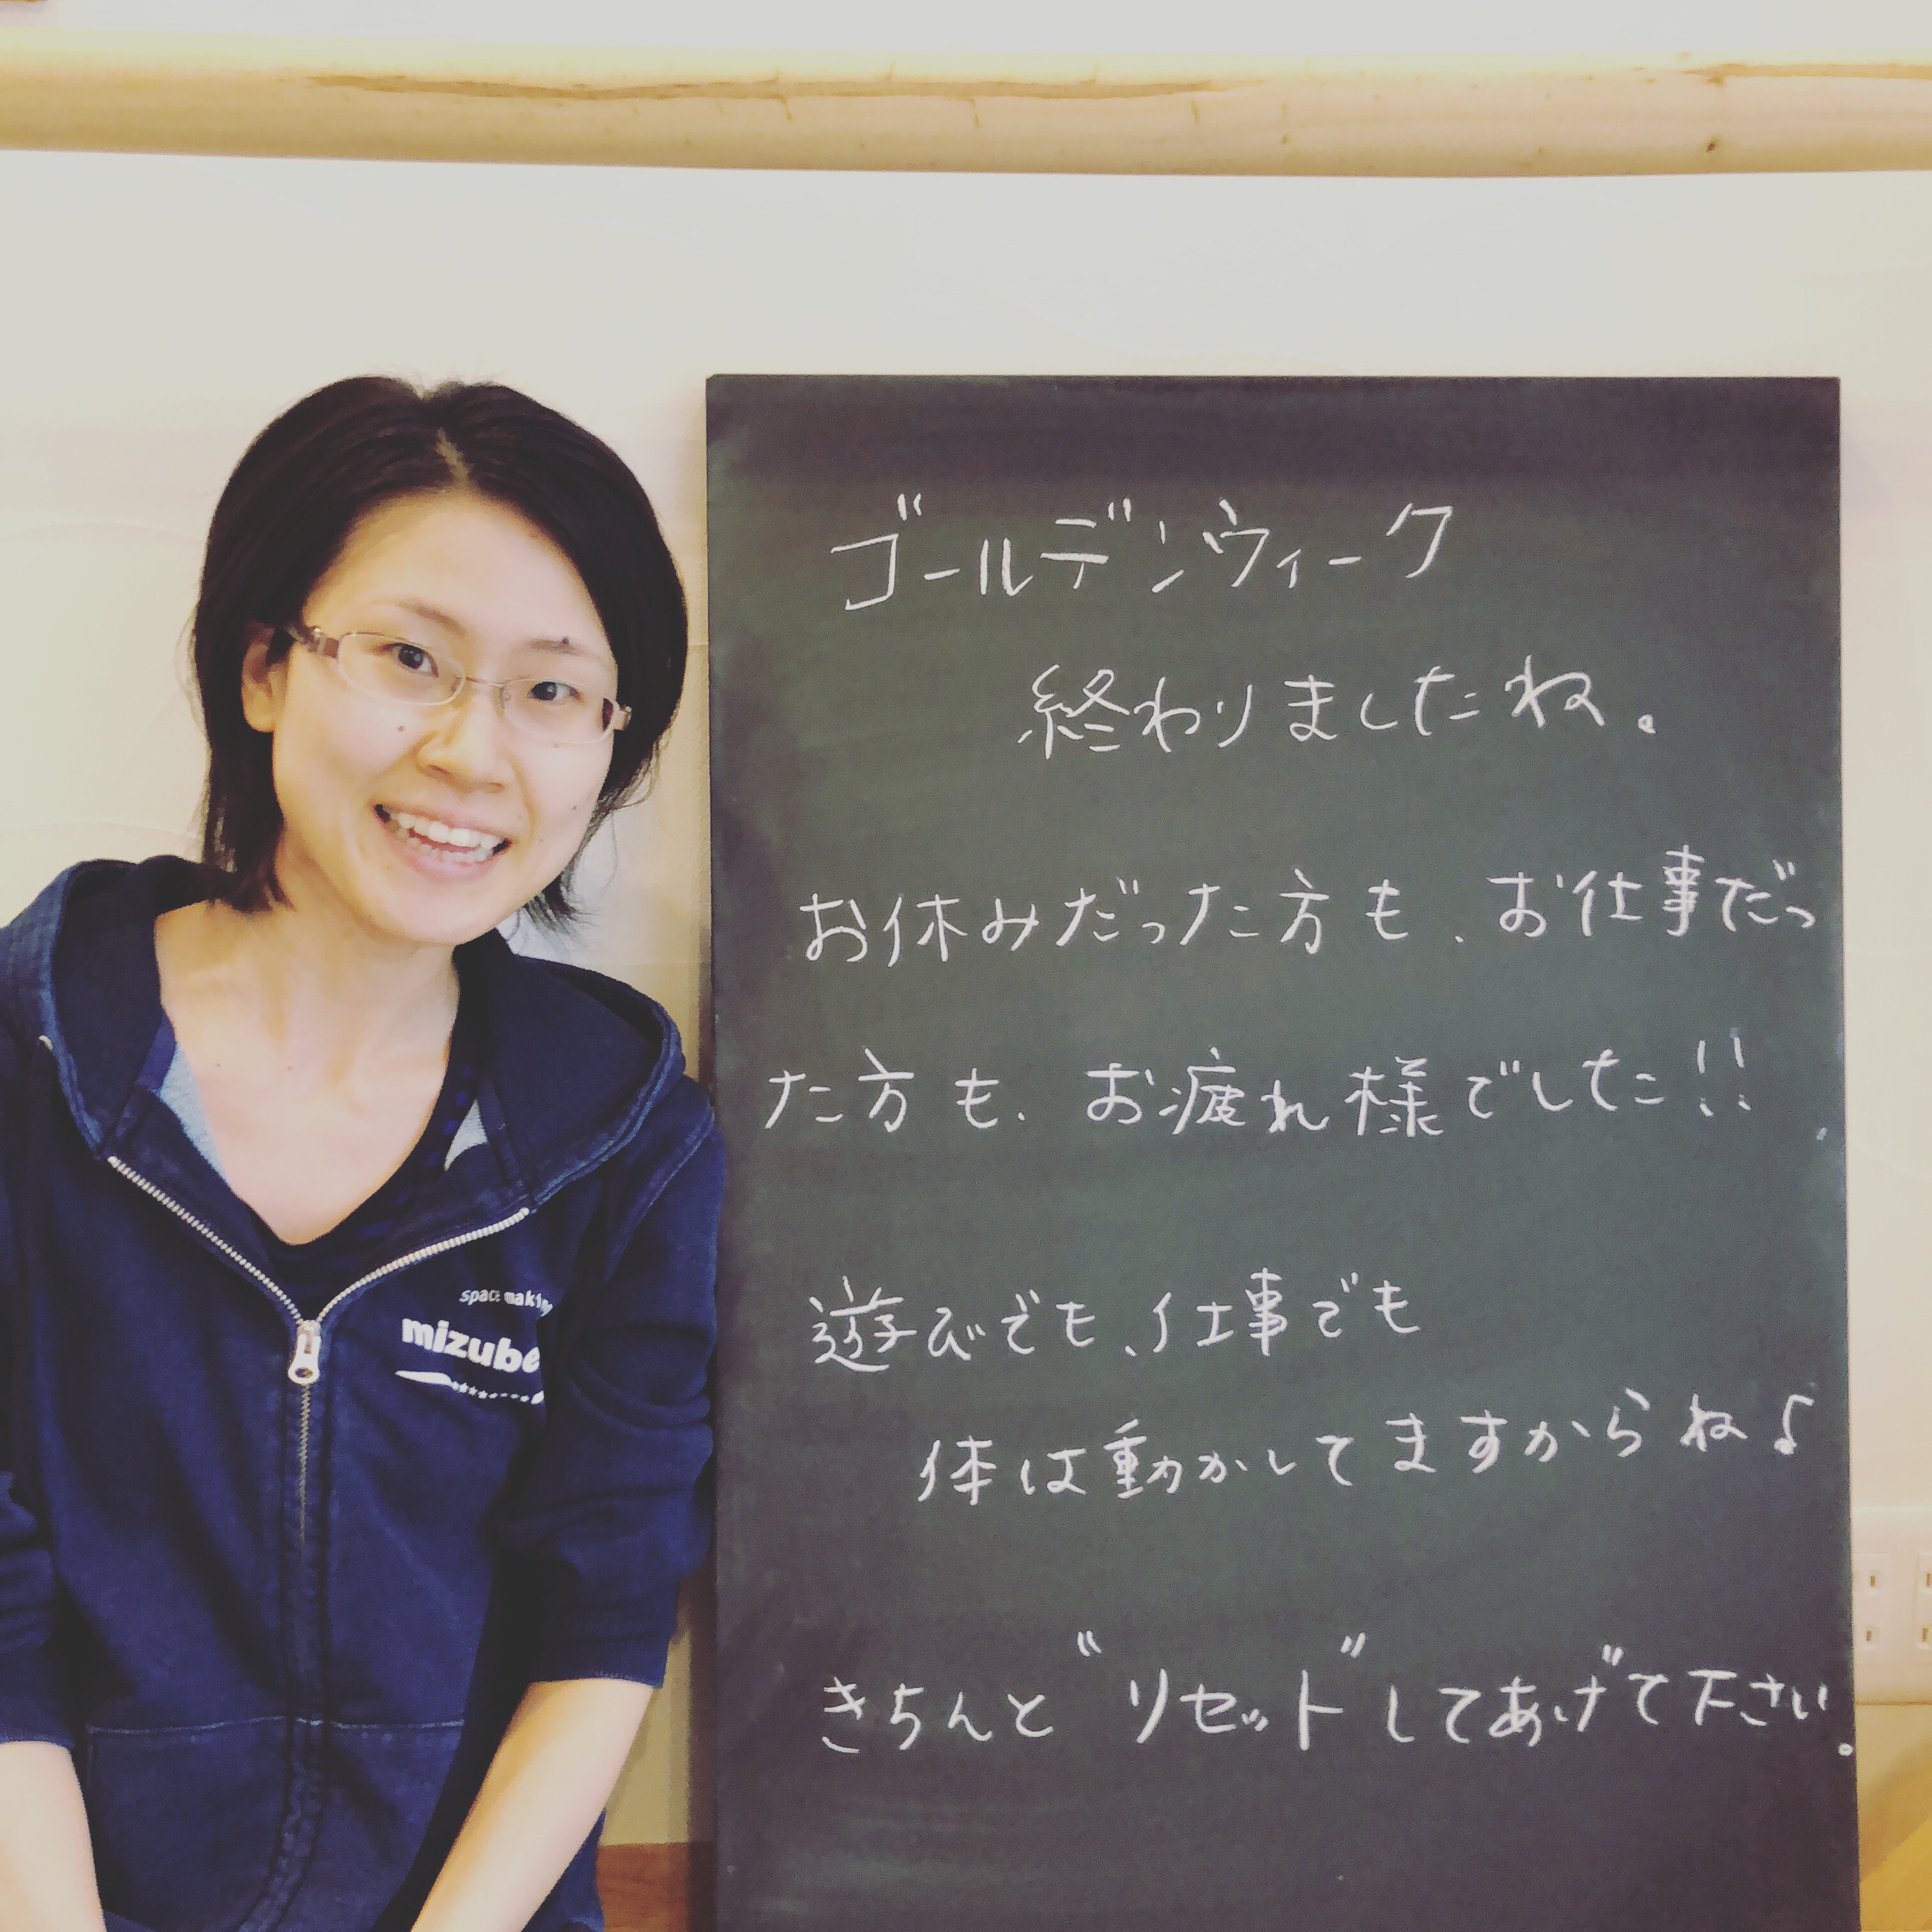 ゴールデンウィーク
終わりましたね。
お休みだった方も、お仕事だっ
た方も、お疲れ様でした!!
遊びでも、仕事でも
体は動かしてますからね♪
きちんと"リセット"してあげて下さい。
space making
mizube